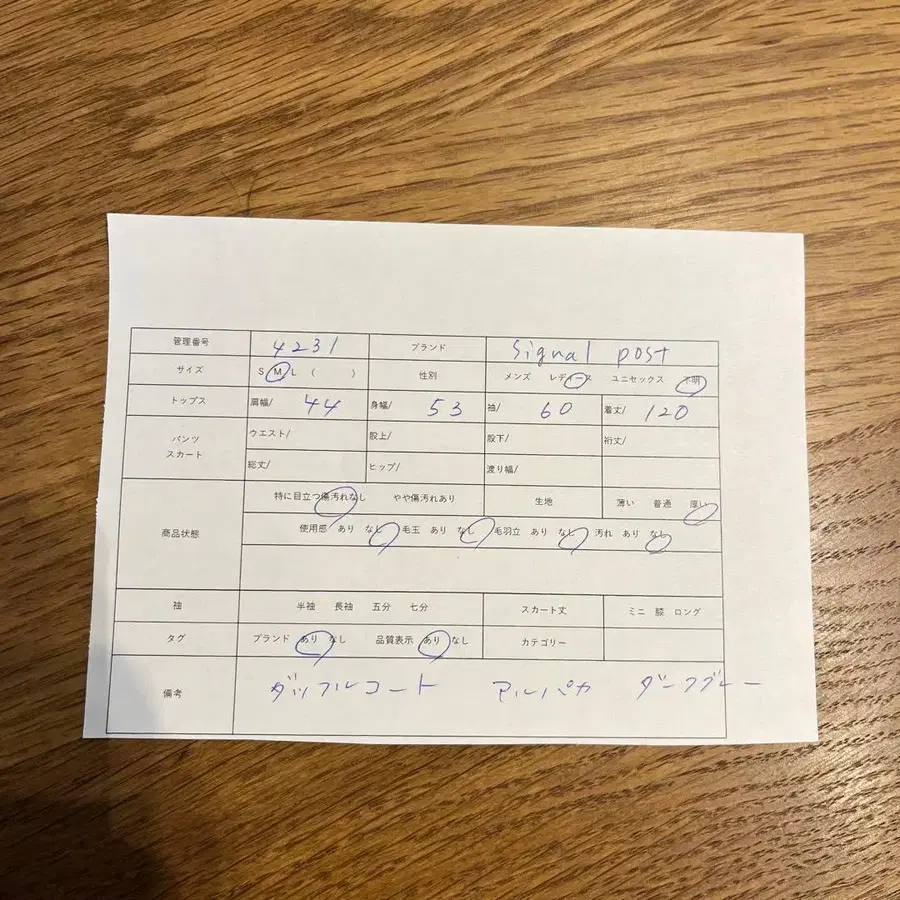 管理番号 4231 ブランド Signal post
サイズ S M L ( ) 性別 メンズ レディース ユニセックス 不明
トップス 肩幅/ 44 身幅/ 53 袖/ 60 着丈/ 120
パンツ スカート ウエスト/ 股上/ 股下/ 裄丈/
総丈/ ヒップ/ 渡り幅/
商品状態 特に目立つ傷汚れなし やや傷汚れあり 生地 薄い 普通 厚い
使用感 あり なし 毛玉 あり なし 毛羽立 あり なし 汚れ あり なし
袖 半袖 長袖 五分 七分 スカート丈 ミニ 膝 ロング
タグ ブランド あり なし 品質表示 あり なし カテゴリー
備考 ダッフルコート アルパカ ダークグレー